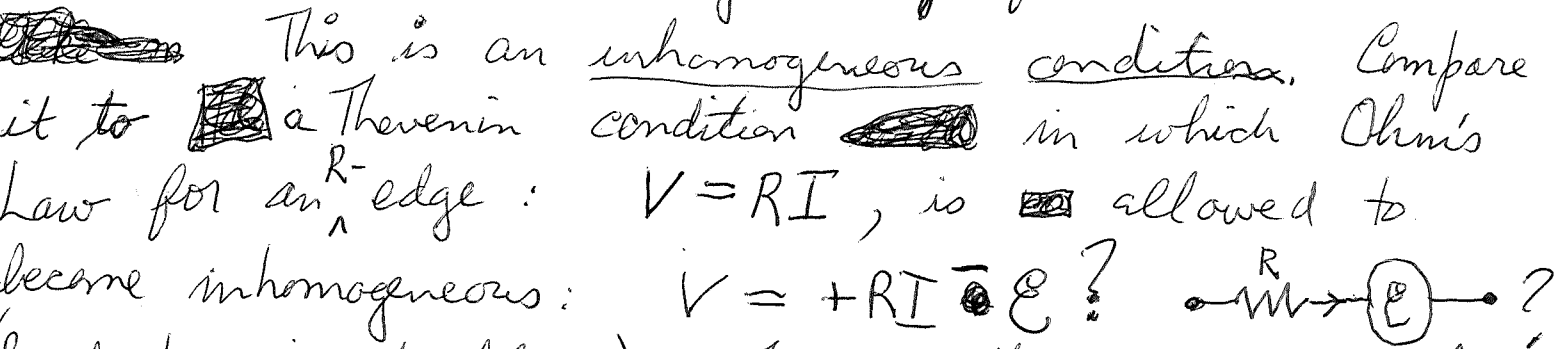 This is an inhomogeneous condition. Compare
it to a Thevenin condition in which Ohm's
Law for an R- edge : V = RI , is allowed to
become inhomogeneous : V = +RI - ℰ ? R ℰ ?